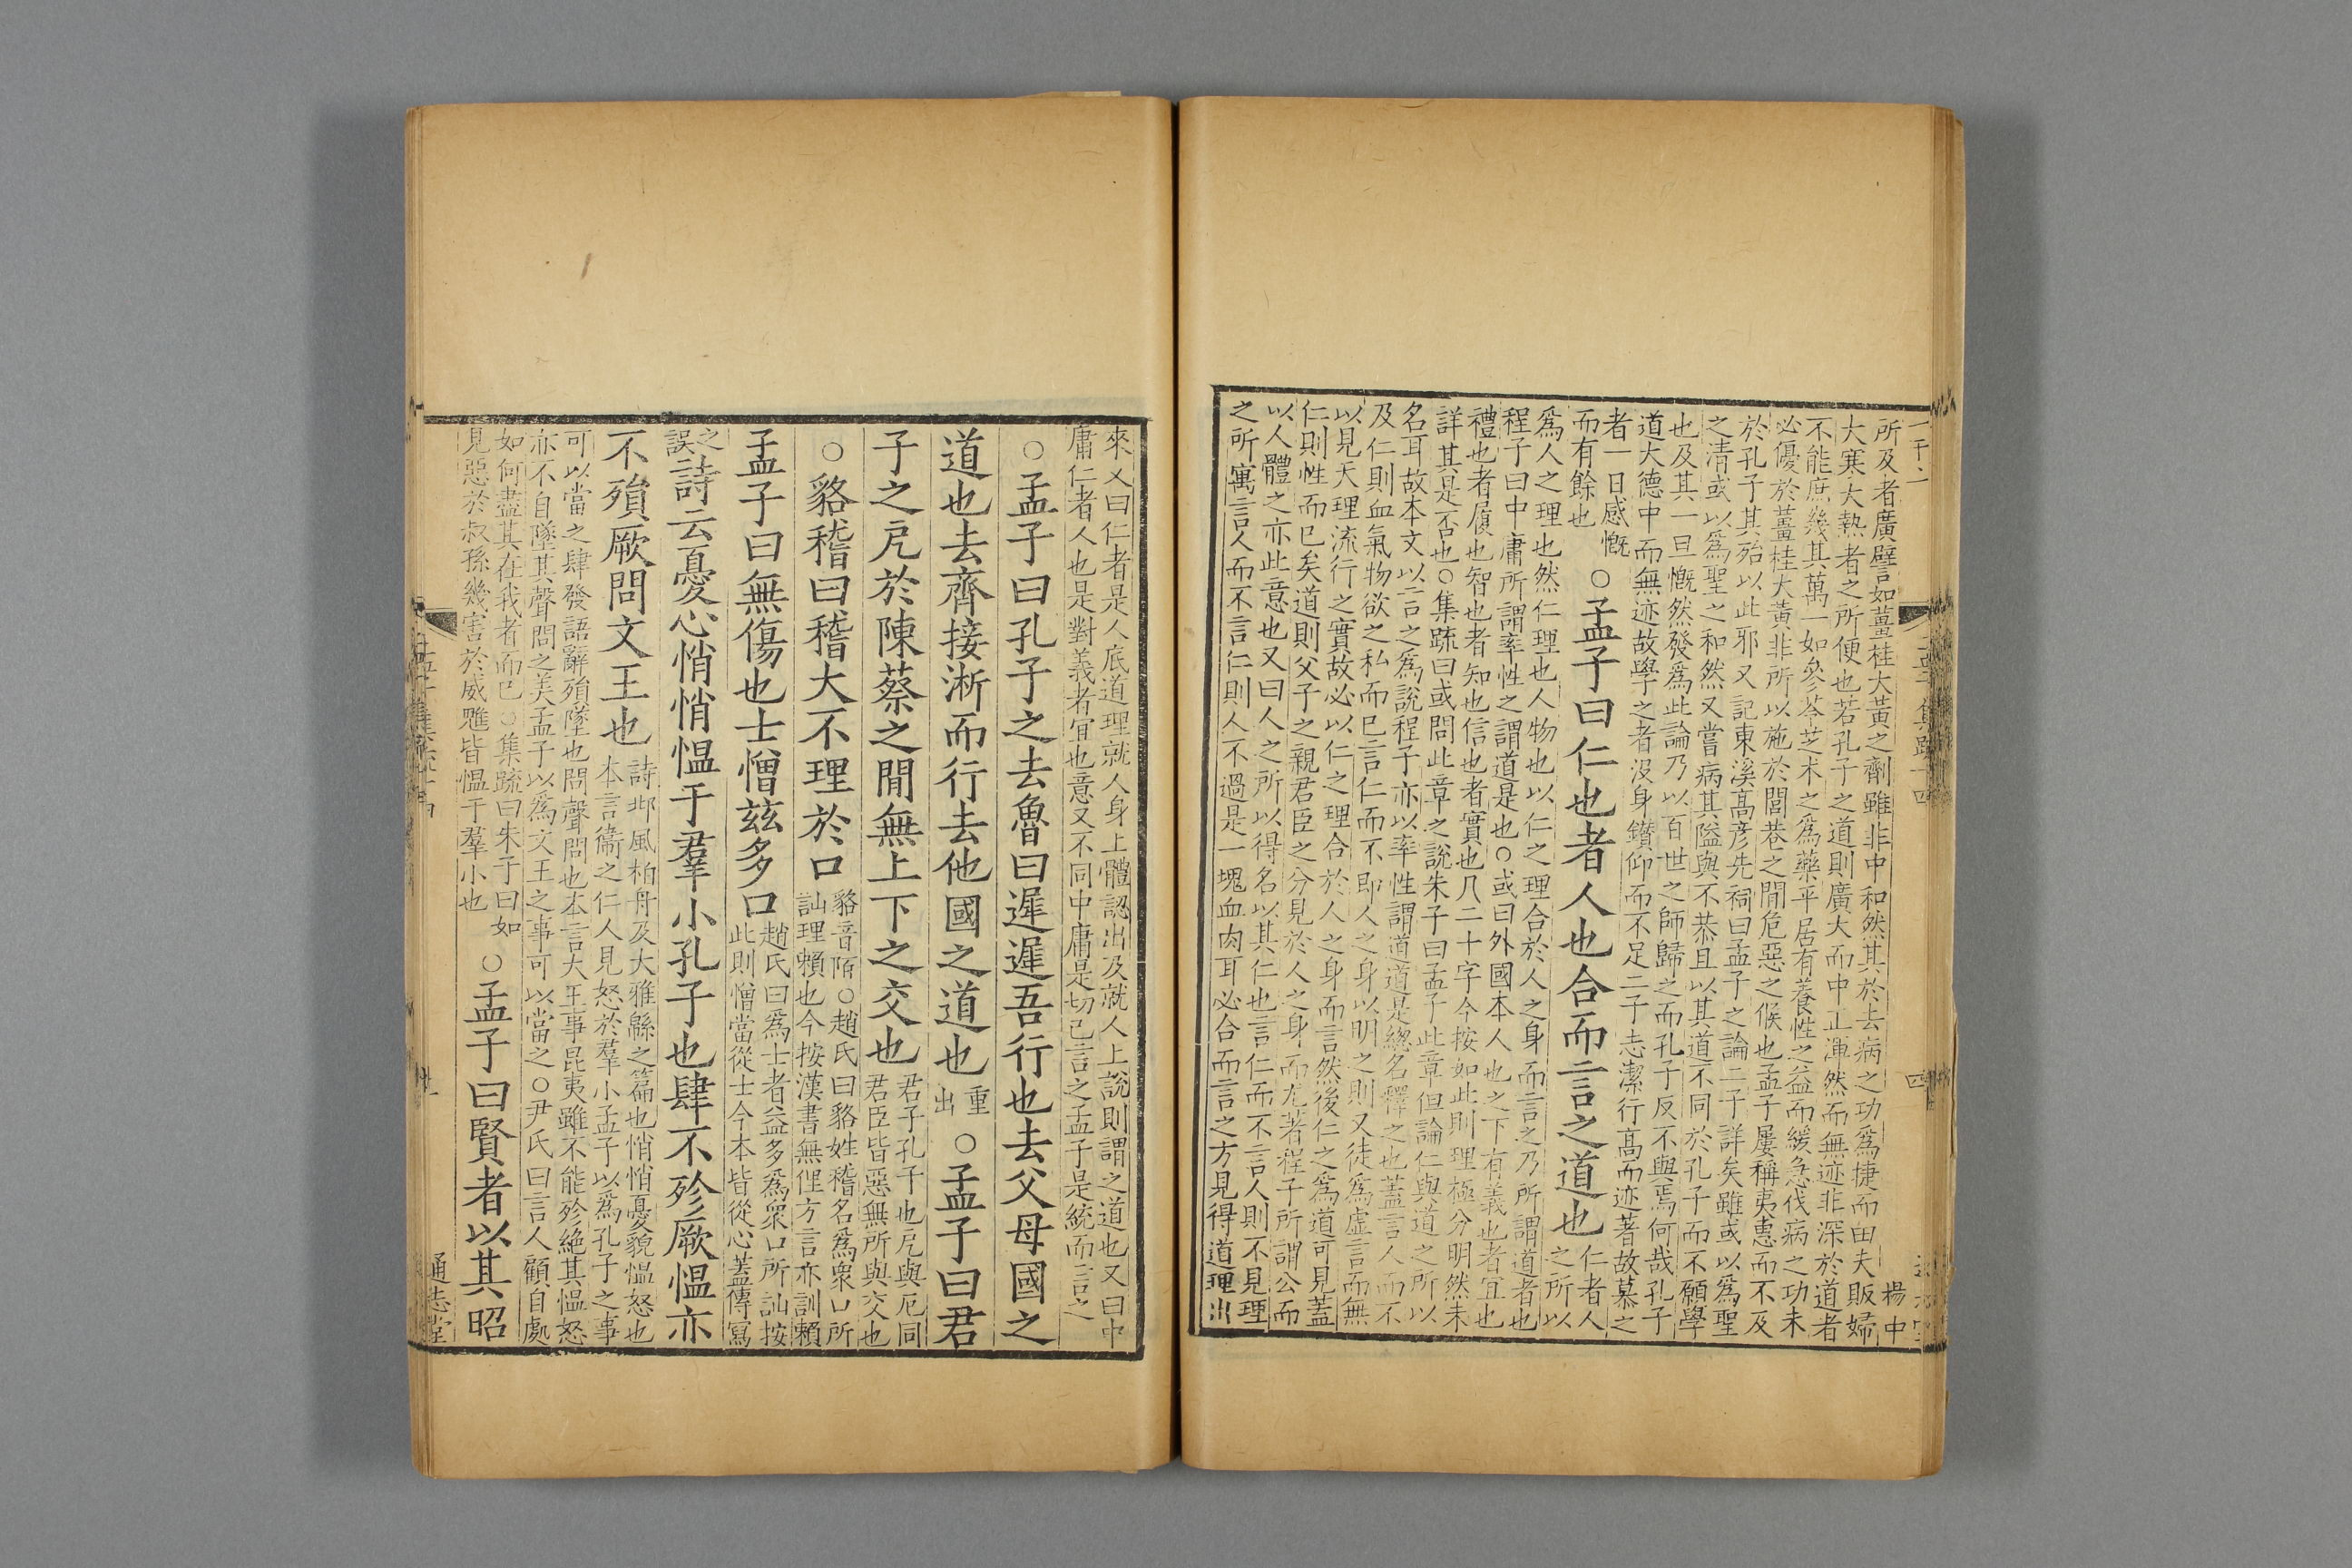 楊中
所及者廣譬如薑桂大黃之劑雖非中和然其於去病之功爲捷而田夫販婦
大寒大熱者之所便也若孔子之道則廣大而中正渾然而無迹非深於道者
不能庶幾其萬一如參苓芝术之爲藥平居有養性之益而緩急伐病之功未
必優於薑桂大黃非所以施於閭巷之閒危惡之候也孟子屢稱夷惠而不及
於孔子其殆以此邪又記東溪高彦先祠曰孟子之論二子詳矣雖或以爲聖
之清或以爲聖之和然又嘗病其隘與不恭且以其道不同於孔子而不願學
也及其一旦慨然發爲此論乃以百世之師歸之而孔子反不與焉何哉孔子
道大德中而無迹故學之者没身鑚仰而不足二子志潔行高而迹著故慕之
者一日感慨
而有餘也
○孟子曰仁也者人也合而言之道也
仁者人
之所以
爲人之理也然仁理也人物也以仁之理合於人之身而言之乃所謂道者也
程子曰中庸所謂率性之謂道是也○或曰外國本人也之下有義也者宜也
禮也者履也智也者知也信也者實也凡二十字今按如此則理極分明然未
詳其是否也○集疏曰或問此章之說朱子曰孟子此章但論仁與道之所以
名耳故本文以言之爲說程子亦以率性謂道道是總名釋之也蓋言人而不
及仁則血氣物欲之私而已言仁而不即人之身以明之則又徒爲虛言而無
以見天理流行之實故必以仁之理合於人之身而言然後仁之爲道可見蓋
仁則性而已矣道則父子之親君臣之分見於人之身而尤著程子所謂公而
以人體之亦此意也又曰人之所以得名以其仁也言仁而不言人則不見理
之所寓言人而不言仁則人不過是一塊血肉耳必合而言之方見得道理出
來又曰仁者是人底道理就人身上體認出及就人上說則謂之道也又曰中
庸仁者人也是對義者宜也意又不同中庸是切己言之孟子是統而言之
○孟子曰孔子之去魯曰遲遲吾行也去父母國之
道也去齊接淅而行去他國之道也
重
出
○孟子曰君
子之戹於陳蔡之閒無上下之交也
君子孔子也戹與厄同
君臣皆惡無所與交也
○貉稽曰稽大不理於口
貉音陌○趙氏曰貉姓稽名爲衆口所
訕理賴也今按漢書無俚方言亦訓賴
孟子曰無傷也士憎兹多口
趙氏曰爲士者益多爲衆口所訕按
此則憎當從士今本皆從心蓋傳寫
之
誤
詩云憂心悄悄愠于羣小孔子也肆不殄厥愠亦
不殞厥問文王也
詩邶風柏舟及大雅緜之篇也悄悄憂貌愠怒也
本言衞之仁人見怒於羣小孟子以爲孔子之事
可以當之肆發語辭殞墜也問聲問也本言大王事昆夷雖不能殄絶其愠怒
亦不自墜其聲問之美孟子以爲文王之事可以當之○尹氏曰言人顧自處
如何盡其在我者而已○集疏曰朱子曰如
見惡於叔孫幾害於威雖皆愠于羣小也
○孟子曰賢者以其昭
通志堂